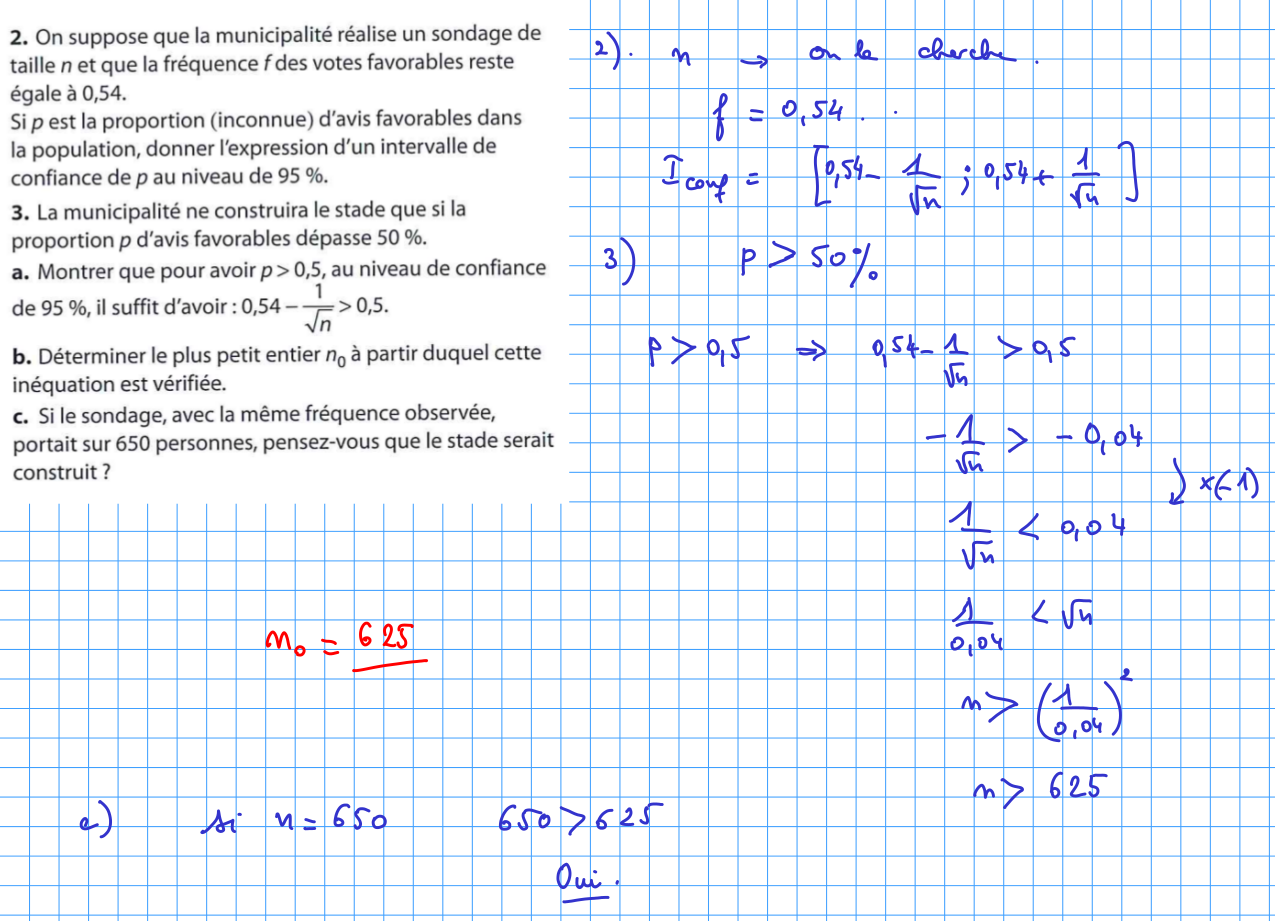 2. On suppose que la municipalité réalise un sondage de
taille n et que la fréquence f des votes favorables reste
égale à 0,54.
Si p est la proportion (inconnue) d'avis favorables dans
la population, donner l'expression d'un intervalle de
confiance de p au niveau de 95 %.
3. La municipalité ne construira le stade que si la
proportion p d'avis favorables dépasse 50 %.
a. Montrer que pour avoir p > 0,5, au niveau de confiance
de 95 %, il suffit d'avoir : 0,54 − 1/√n > 0,5.
b. Déterminer le plus petit entier n₀ à partir duquel cette
inéquation est vérifiée.
c. Si le sondage, avec la même fréquence observée,
portait sur 650 personnes, pensez-vous que le stade serait
construit ?
2). n → on le cherche.
f = 0,54.
I conf = [0,54 − 1/√n ; 0,54 + 1/√n]
3) p > 50%
p > 0,5 ⇒ 0,54 − 1/√n > 0,5
− 1/√n > − 0,04
×(−1)
1/√n < 0,04
1/0,04 < √n
n > (1/0,04)²
n > 625
n₀ = 625
c) si n = 650 650 > 625
Oui.